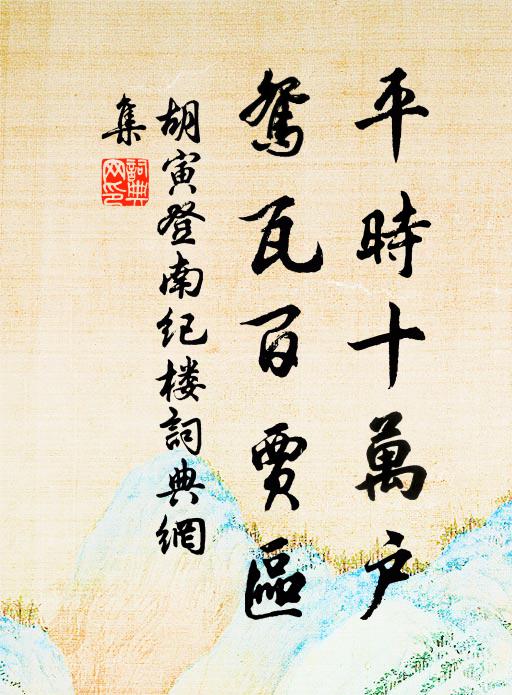 平時十萬戶
鴛瓦百賈區
胡寅登南紀楼詞典網
集
詞典网印